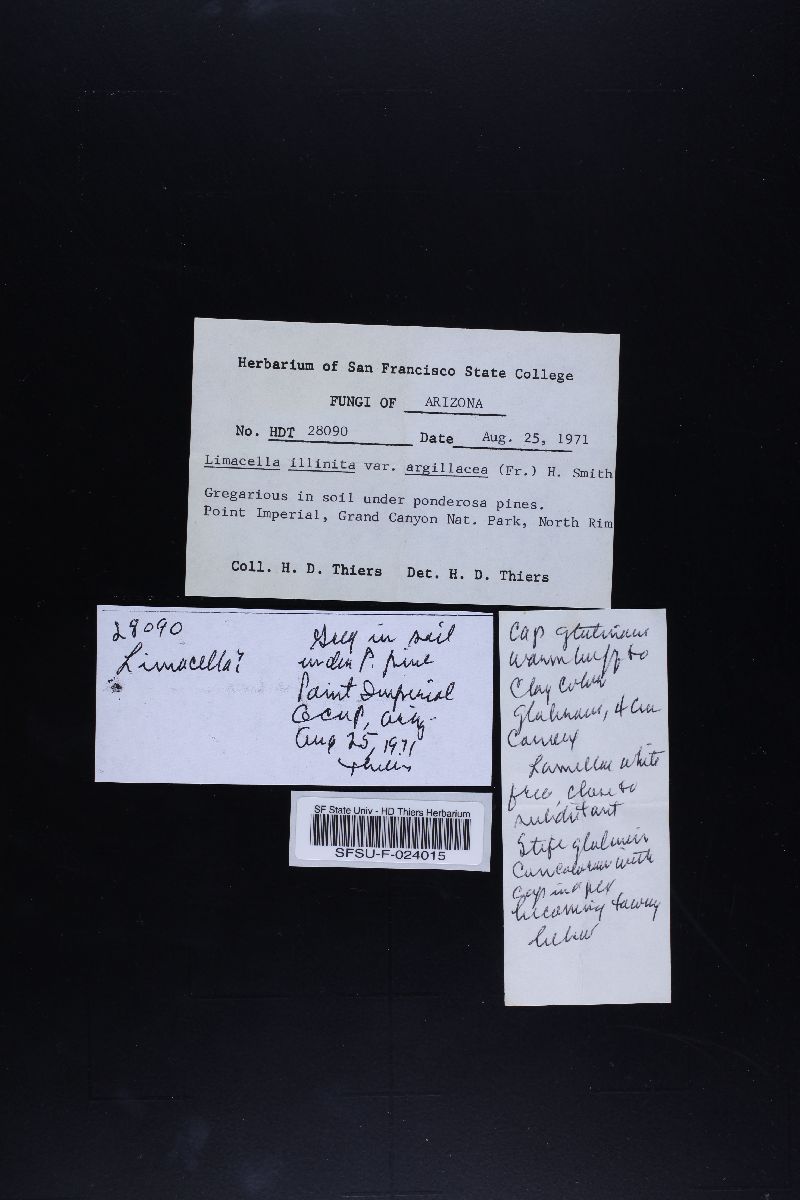 Herbarium of San Francisco State College
FUNGI OF ARIZONA
No. HDT 28090 Date Aug. 25, 1971
Limacella illinita var. argillacea (Fr.) H. Smith
Gregarious in soil under ponderosa pines.
Point Imperial, Grand Canyon Nat. Park, North Rim
Coll. H. D. Thiers Det. H. D. Thiers
28090
Limacella?
Greg in soil
under P. pine
Point Imperial
Ariz
Aug 25, 1971
Thiers
SF State Univ - HD Thiers Herbarium
SFSU-F-024015
Cap glutinous
warm buff to
Clay Color
glutinous, 4 cm
Convex
Lamellae white
free, close to
subdistant
Stipe glutinous
Concolorous with
cap in apex
becoming tawny
below